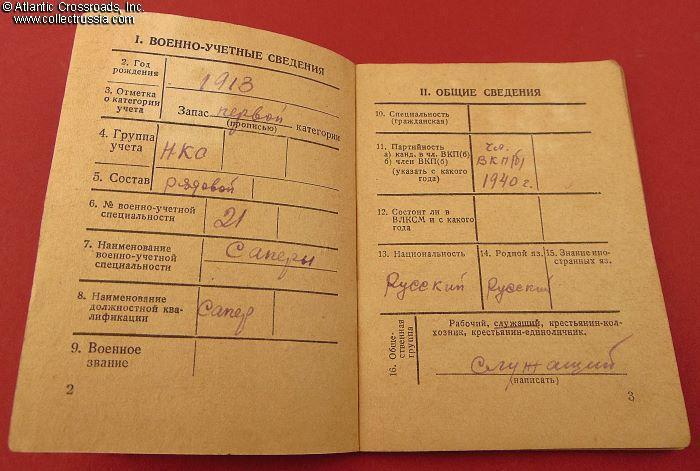 © Atlantic Crossroads, Inc.
www.collectrussia.com
I. ВОЕННО-УЧЕТНЫЕ СВЕДЕНИЯ
2. Год
рождения
1913
3. Отметка
о категории
учета
Запас первой категории
(прописью)
4. Группа
учета
НКО
5. Состав
рядовой
6. № военно-учетной
специальности
21
7. Наименование
военно-учетной
специальности
Саперы
8. Наименование
должностной ква-
лификации
Сапер
9. Военное
звание
2
II. ОБЩИЕ СВЕДЕНИЯ
10. Специальность
(гражданская)
11. Партийность
а) канд. в чл. ВКП(б)
б) член ВКП(б)
(указать с какого
года)
чл.
ВКП(б)
1940 г.
12. Состоит ли в
ВЛКСМ и с какого
года
13. Национальность
Русский
14. Родной яз.
Русский
15. Знание ино-
странных яз.
16. Обще-
ственная
группа
Рабочий, служащий, крестьянин-кол-
хозник, крестьянин-единоличник.
Служащий
(написать)
3